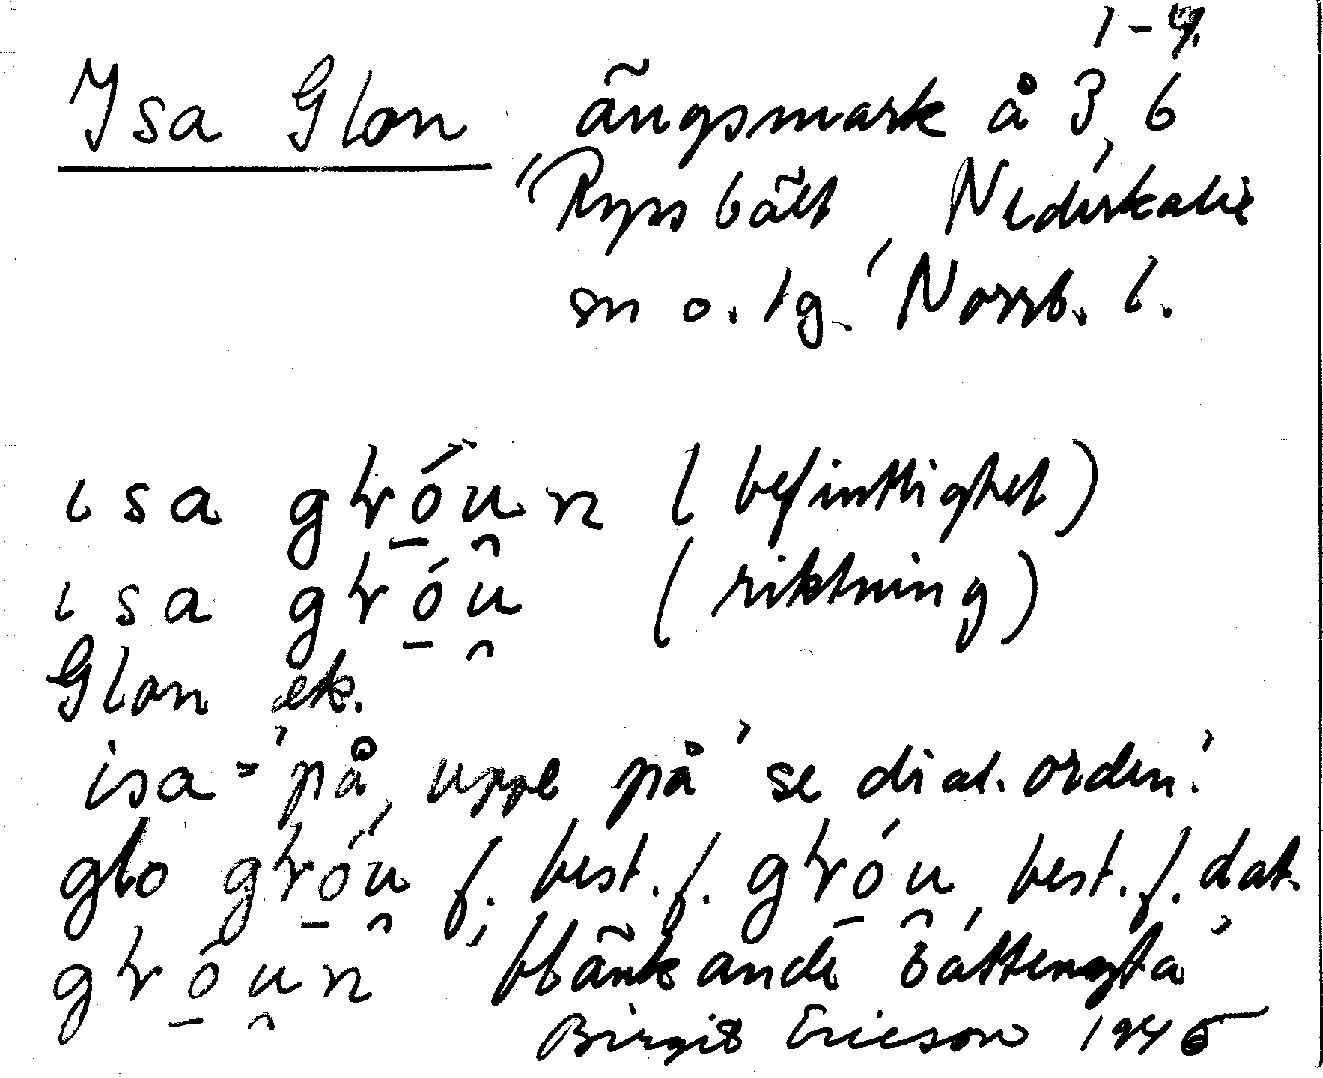 1-4.
Isa Glon ängsmark å 3, 6
"Ryssbält, Nederkalix
sn o. tg. Norrb. l.
isa gɫóu̯n (befintlighet)
isa gɫóu̯ (riktning)
Glon ek.
isa = 'på, uppe på' se dial. orden.
glo gɫóu̯ f. best. f. gɫóu̯, best. f. dat.
gɫóu̯n 'blänkande vattenyta'
Birgit Ericson 1945